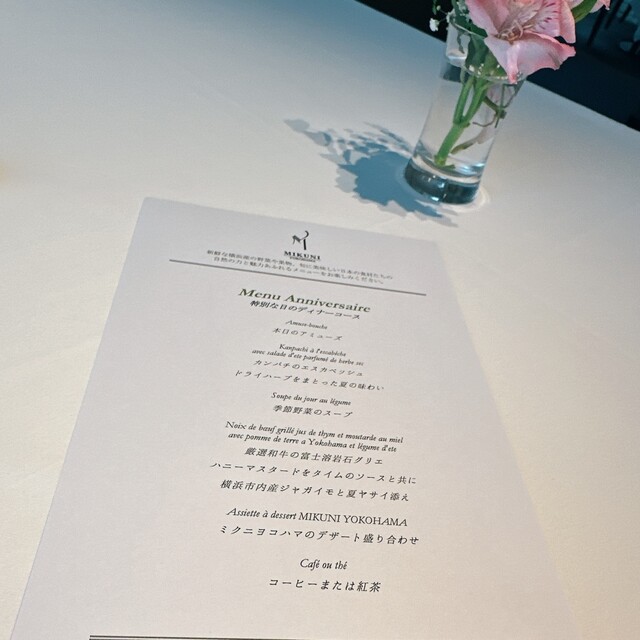 MIKUNI
新鮮な横浜産の野菜や果物、旬に美味しい日本の食材たちの
自然の力と魅力あふれるメニューをお楽しみください。
Menu Anniversaire
特別な日のディナーコース
Amuse-bouche
本日のアミューズ
Kanpachi à l'escabèche
avec salade d'ete parfumé de herbe sec
カンパチのエスカベッシュ
ドライハーブをまとった夏の味わい
Soupe du jour au légume
季節野菜のスープ
Noix de bœuf grillé jus de thym et moutarde au miel
avec pomme de terre a Yokohama et légume d'ete
厳選和牛の富士溶岩石グリエ
ハニーマスタードをタイムのソースと共に
横浜市内産ジャガイモと夏ヤサイ添え
Assiette à dessert MIKUNI YOKOHAMA
ミクニヨコハマのデザート盛り合わせ
Café ou thé
コーヒーまたは紅茶